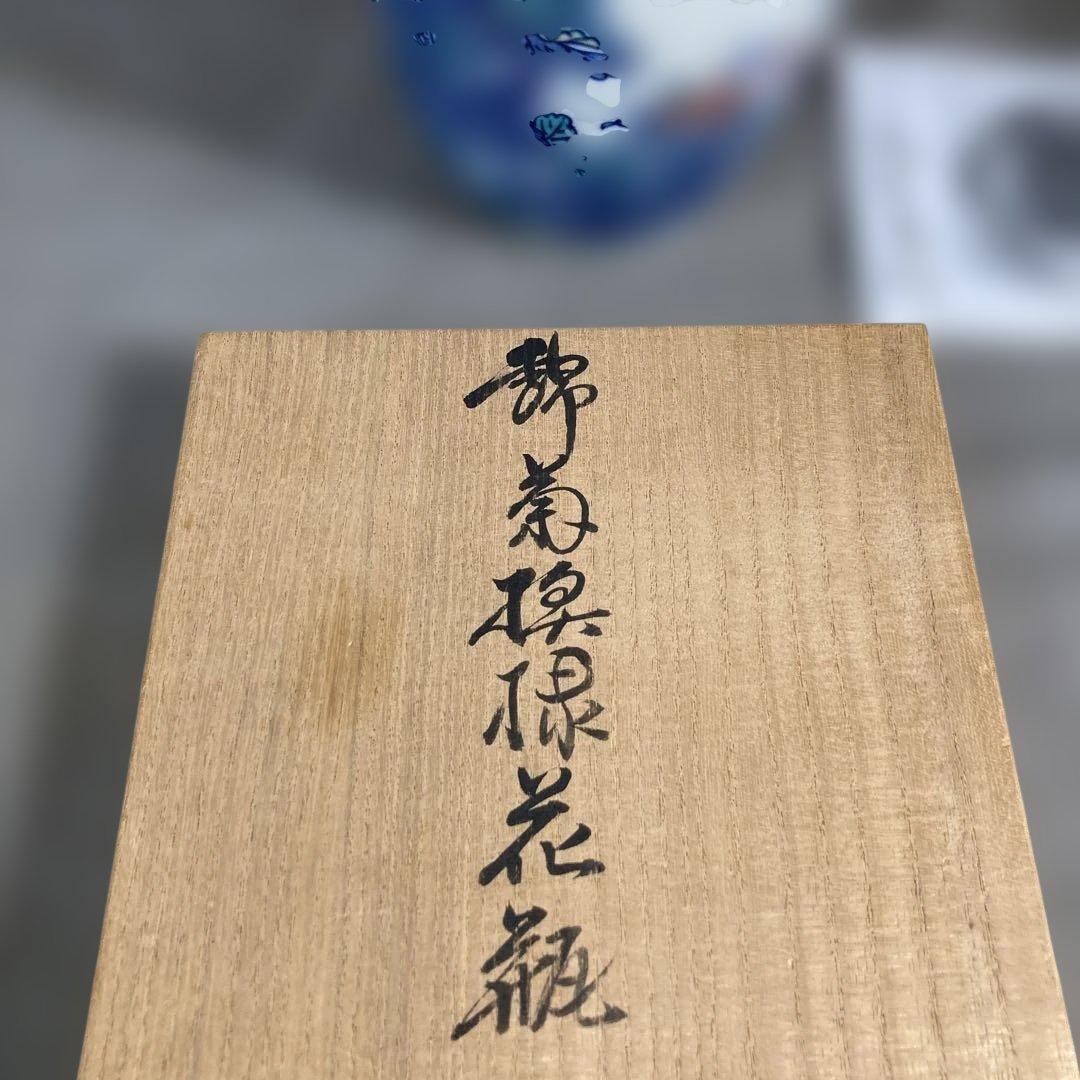 錦菊模様花瓶